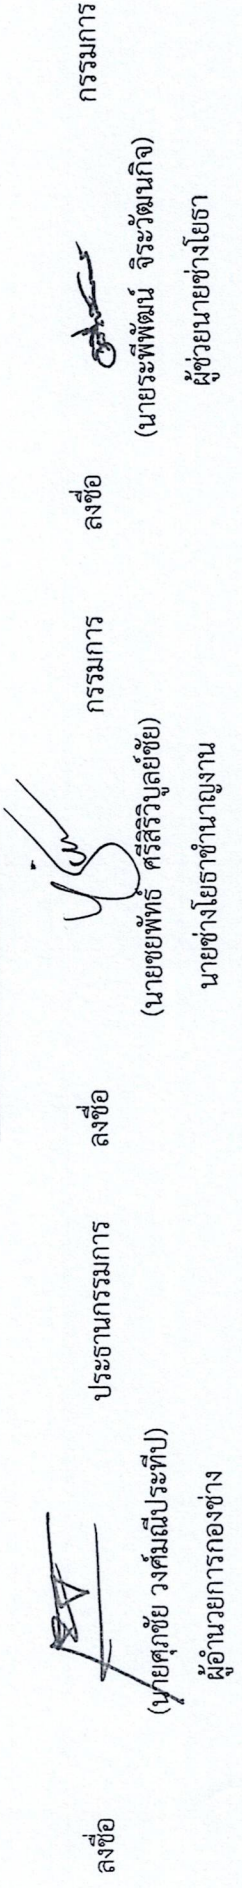 ลงชื่อ ประธานกรรมการ
(นายศุภชัย วงศ์มณีประทีป)
ผู้อำนวยการกองช่าง
ลงชื่อ กรรมการ
(นายชยพัทธ์ ศรีสิริวิบูลย์ชัย)
นายช่างโยธาชำนาญงาน
ลงชื่อ กรรมการ
(นายระพีพัฒน์ จิระวัฒนกิจ)
ผู้ช่วยนายช่างโยธา